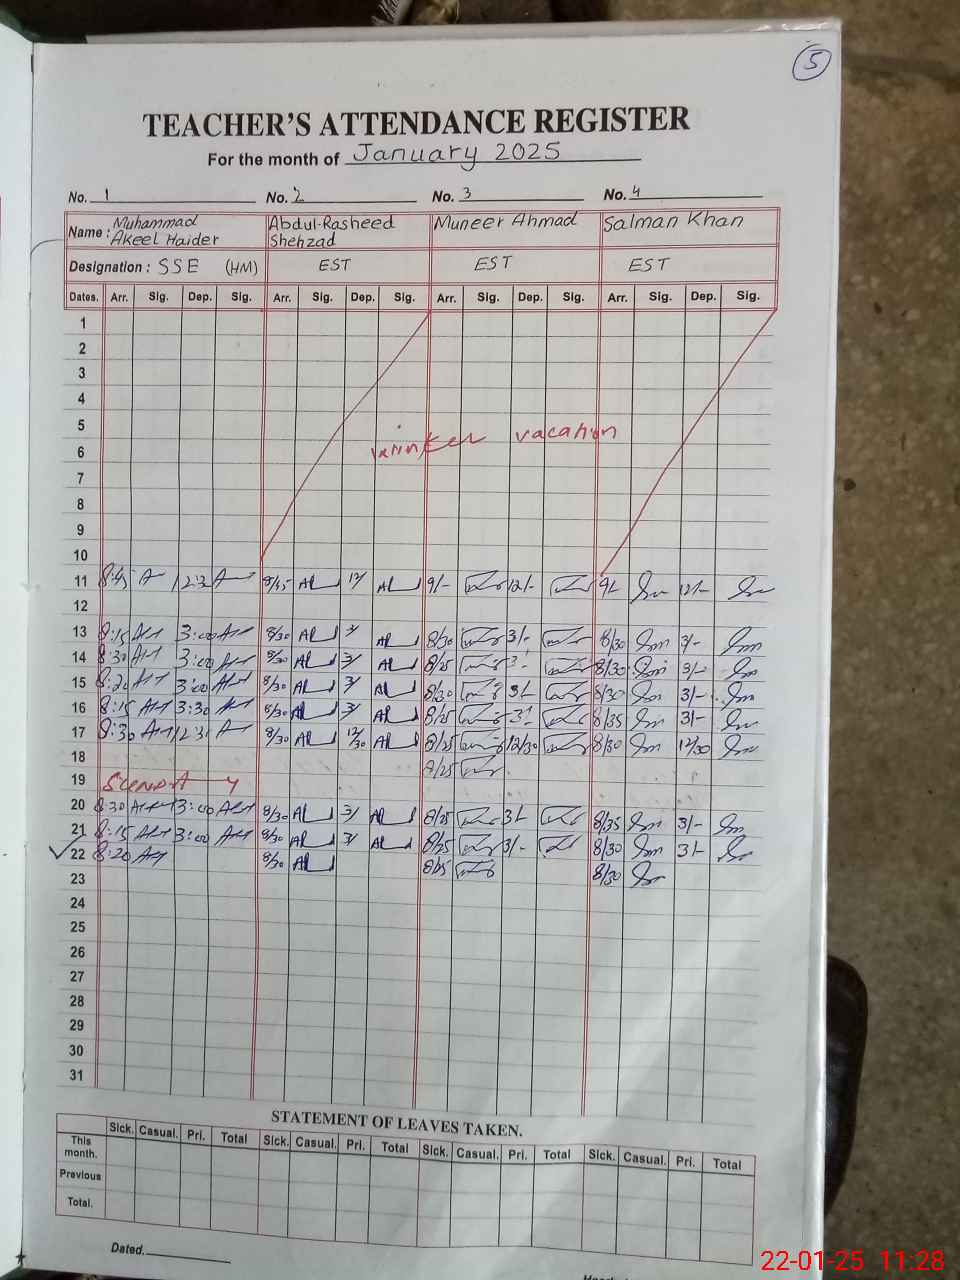 5
TEACHER'S ATTENDANCE REGISTER
For the month of January 2025
No. 1 No. 2 No. 3 No. 4
Name : Muhammad Akeel Haider Abdul-Rasheed Shehzad Muneer Ahmad Salman Khan
Designation : SSE (HM) EST EST EST
Dates. Arr. Sig. Dep. Sig. Arr. Sig. Dep. Sig. Arr. Sig. Dep. Sig. Arr. Sig. Dep. Sig.
1
2
3
4
5
winter vacation
6
7
8
9
10
11 8:45 12:3 8/45 12/ 9/- 12/- 9/- 12/-
12
13 8:15 3:00 8/30 3/ 8/30 3/- 8/30 3/-
14 8:30 3:00 8/30 3/ 8/25 3/ 8/30 3/-
15 8:20 3:00 8/30 3/ 8/30 3/- 8/30 3/-
16 8:15 3:30 8/30 3/ 8/25 3/ 8/35 3/-
17 8:30 12:3 8/30 12/30 8/25 12/30 8/30 12/30
18 8/25
19 SUNDAY
20 8:30 3:00 8/30 3/ 8/25 3/- 8/35 3/-
21 8:15 3:00 8/30 3/ 8/25 3/- 8/30 3/-
22 8:20 8/30 8/25 8/30
23
24
25
26
27
28
29
30
31
STATEMENT OF LEAVES TAKEN.
Sick. Casual. Pri. Total Sick. Casual. Pri. Total Sick. Casual. Pri. Total Sick. Casual. Pri. Total
This month.
Previous
Total.
Dated.
22-01-25 11:28